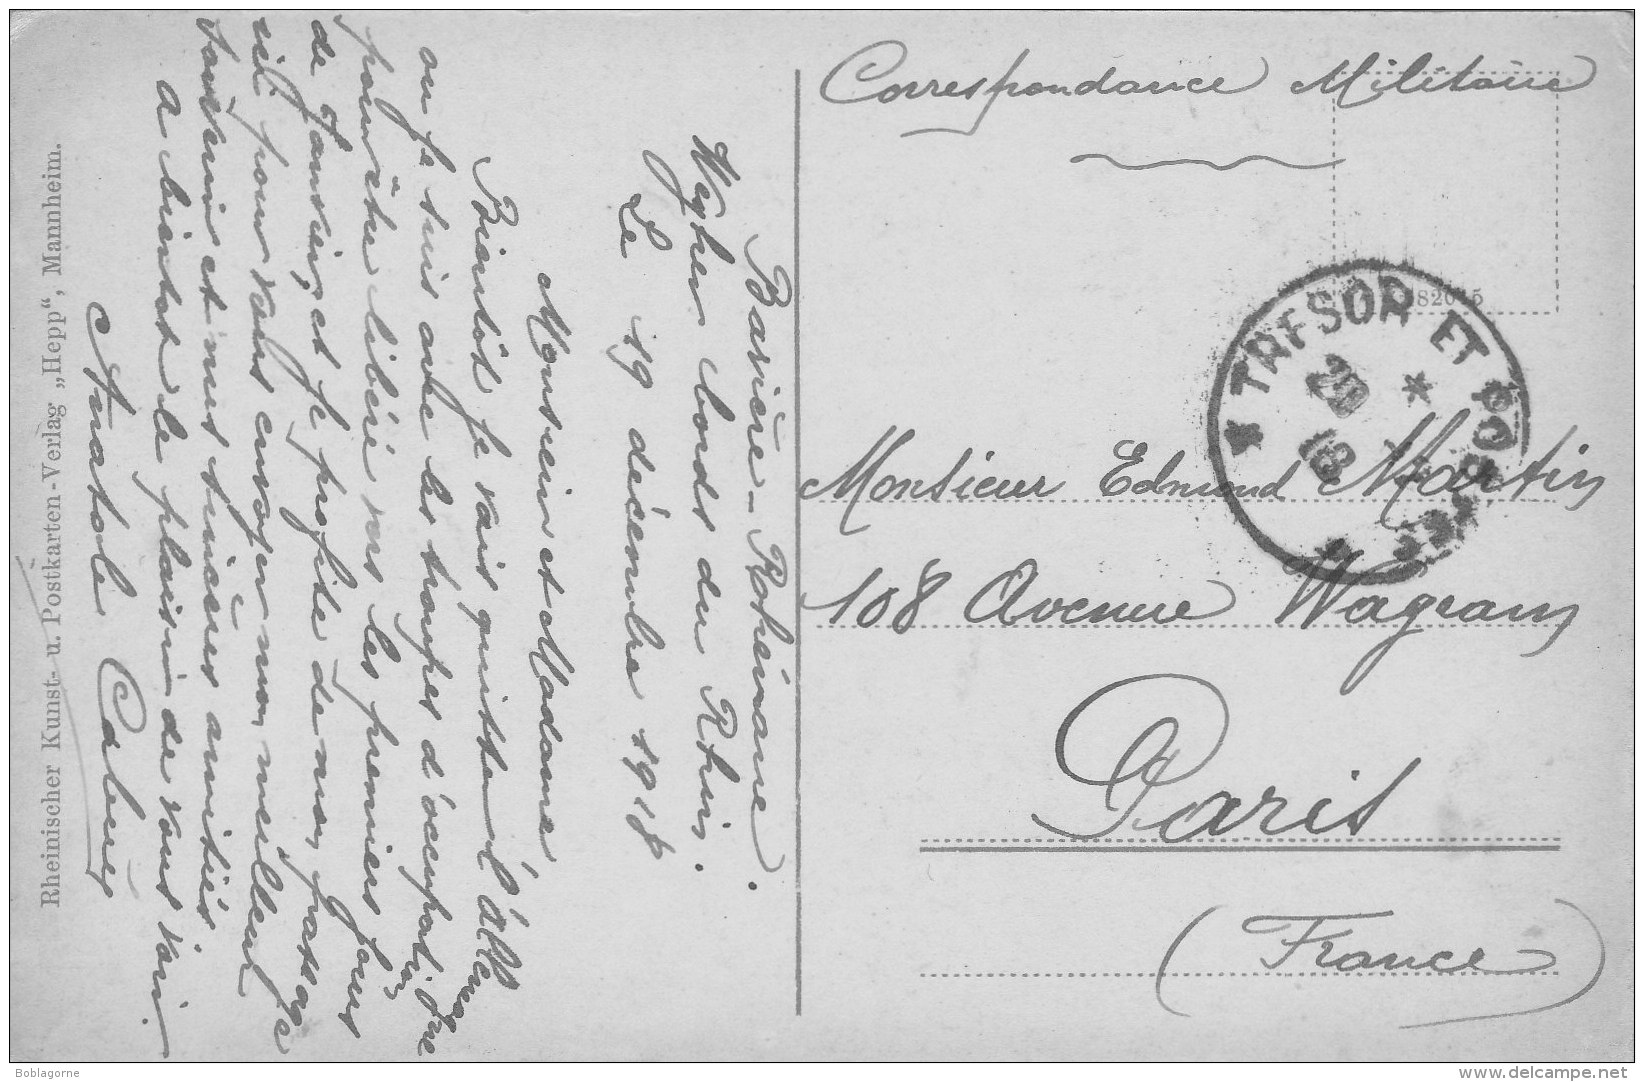 Correspondance Militaire
82015
TRESOR ET POSTES
20
18
Monsieur Edmond Martin
108 Avenue Wagram
Paris
(France)
Bavière-Rhénane.
Weyher bords du Rhin.
Le 19 décembre 1918
Monsieur et Madame
Bientôt je vais quitter l'Allemagne
ou je suis avec les troupes d'occupation
pour être libéré vers les premiers jours
de Janvier, et je profite de mon passage
ici pour vous envoyer mon meilleur
souvenir et mes sincères amitiés
A bientot le plaisir de vous voir.
Anatole
Rheinischer Kunst- u. Postkarten-Verlag „Hepp“, Mannheim.
Boblagorne
www.delcampe.net